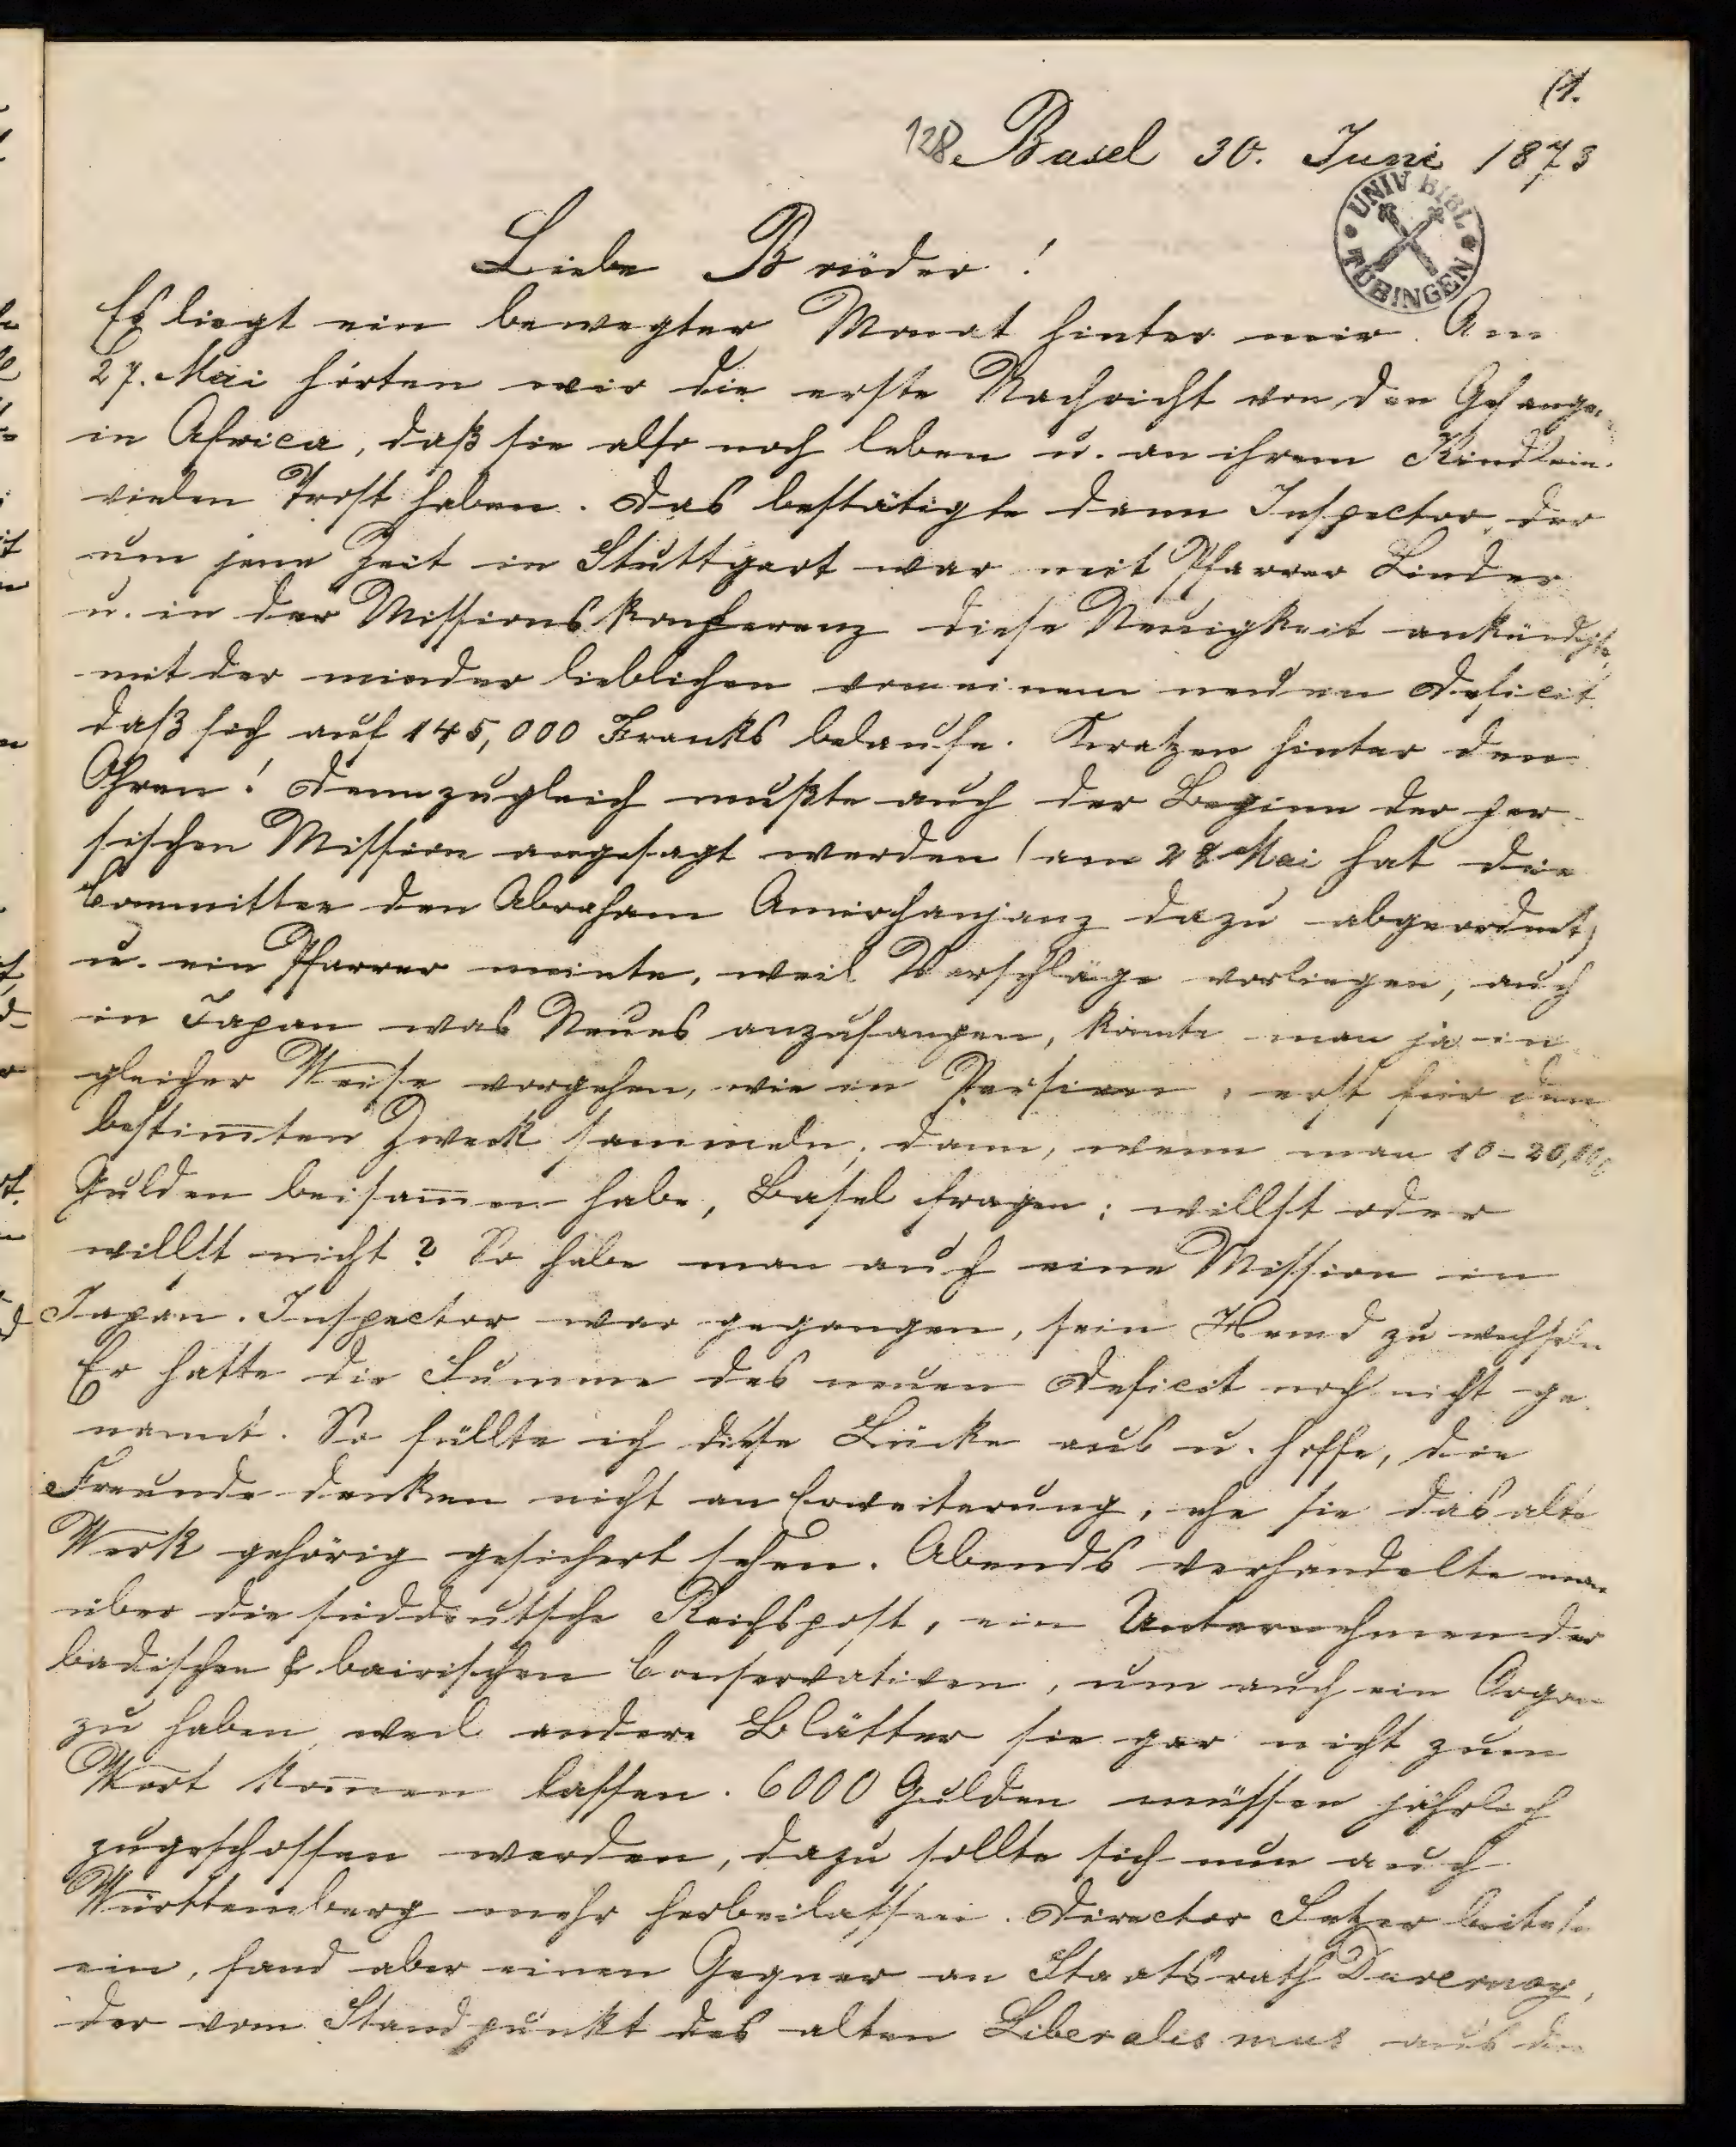 (1.
128 Basel 30. Juni 1873
UNIV BIBL TÜBINGEN
Liebe Brüder!
Es liegt ein bewegter Monat hinter mir. Am
27. Mai hörten wir die erste Nachricht von den Gefange-
in Africa, daß sie also noch leben u. an ihrem Kindlein
vielen Trost haben. Das bestätigte dann Inspector, der
um jene Zeit in Stuttgart war mit Pfarrer Linder
u. in der Missionskonferenz diese Neuigkeit ankündigte,
mit der minder lieblichen von einem neuen Deficit
daß sich auf 145,000 Franks belaufe. Kratzen hinter den
Ohren! Denn zugleich mußte auch der Beginn der per-
sischen Mission angesagt werden (am 28 Mai hat die
Committee den Abraham Amirchanjanz dazu abgeordnet)
u. ein Pfarrer meinte, weil Vorschläge vorliegen, auch
in Japan was Neues anzufangen, könnte man ja in
gleicher Weise vorgehen, wie in Persien, erst für den
bestim̄ten Zweck sammeln, dann, wenn man 10-20,000
Gulden beisam̄en habe, Basel fragen: willst oder
willst nicht? So habe man auch eine Mission in
Japan. Inspector war gegangen, sein Hemd zu wechseln
Er hatte die Summe des neuen Deficit noch nicht ge-
nannt. So füllte ich diese Lücke aus u. hoffe, die
Freunde denken nicht an Erweiterung, ehe sie das alte
Werk gehörig gesichert sehen. Abends verhandelte man
über die süddeutsche Reichspost, ein Unternehmen der
badischen & bairischen Conservativen, um auch ein Organ
zu haben, weil andere Blätter sie gar nicht zum
Wort kom̄en lassen. 6000 Gulden müssen jährlich
zugeschossen werden, dazu sollte sich nun auch
Württemberg mehr herbeilassen. Director Sezer leitete
ein, fand aber einen Gegner an Staatsrath Duvernoy,
der vom Standpunkt des alten Liberalismus aus die